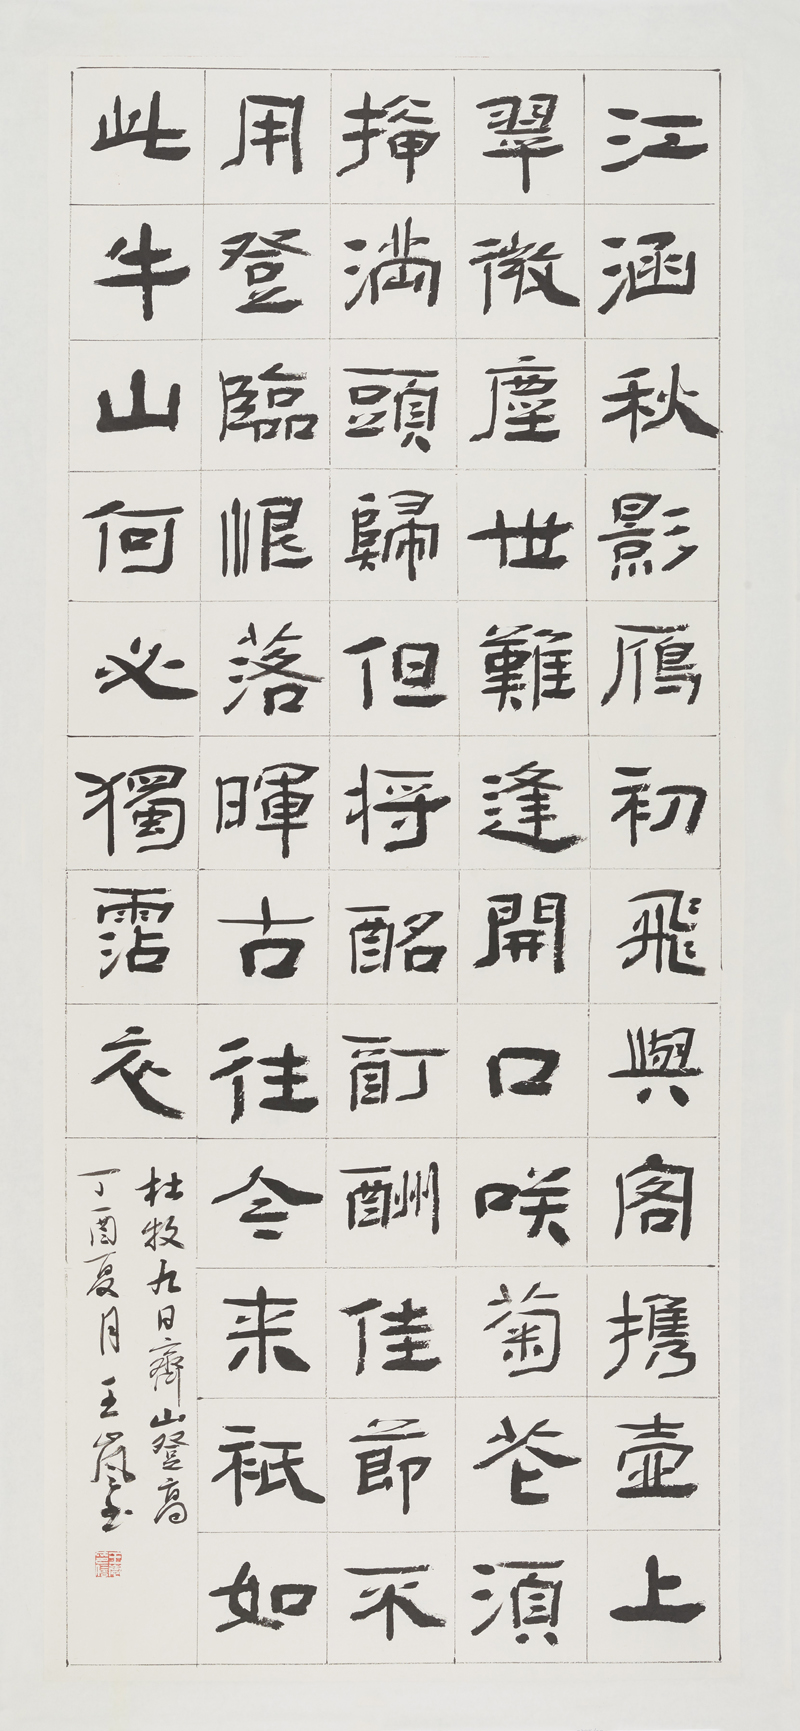 江涵秋影鴈初飛與客携壺上
翠微塵世難逢開口咲菊花須
揷滿頭歸但将酩酊酬佳節不
用登臨恨落暉古往今来祇如
此牛山何必獨霑衣
杜牧九日齊山登高
丁酉夏月王嵐书